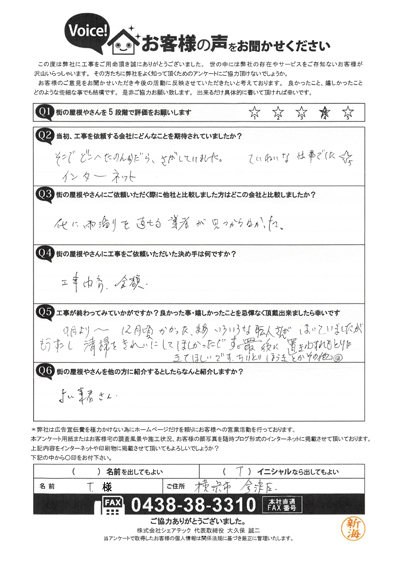 Voice!
お客様の声をお聞かせください
この度は弊社に工事をご用命頂き誠にありがとうございました。 世の中には弊社の存在やサービスをご存知ないお客様が
沢山いらっしゃいます。 その方たちに弊社をよく知って頂くためのアンケートにご協力頂けないでしょうか。
お客様のご意見をお聞かせいただき今後の活動に反映させていただきたいと考えております。 良かったこと、嬉しかったこと
どのような些細な事でも結構です。 是非ご協力お願い致します。 出来るだけ具体的に書いて頂ければ幸いです。
Q1 街の屋根やさんを5段階で評価をお願いします
☆ ☆ ☆ ★ ☆
Q2 当初、工事を依頼する会社にどんなことを期待されていましたか?
ていねいな 仕事でした
インターネット
Q3 街の屋根やさんにご依頼いただく際に他社と比較しました方はどこの会社と比較しましたか?
他に雨漏りを直せる業者が見つからなかった。
Q4 街の屋根やさんに工事をご依頼いただいた決め手は何ですか?
工事内容、金額
Q5 工事が終わってみていかがですか?良かった事・嬉しかったことを忌憚なく頂戴出来ましたら幸いです
12月頃 かかった
いろいろな 職人さんが はいていましたが
清掃をきれいにしてほしかったです
Q6 街の屋根やさんを他の方に紹介するとしたらなんと紹介しますか?
よい業者さん
*弊社は広告宣伝費を極力かけない為にホームページだけを頼りにお客様への営業活動を行っております。
本アンケート用紙またはお客様宅の調査風景や施工状況、お客様の顔写真を随時ブログ形式のインターネットに掲載させて頂いております。
上記内容をインターネットや印刷物に掲載させて頂いてもよろしいでしょうか?
下記の中から○印をお付け下さい。
( ) 名前を出してもよい ( T ) イニシャルなら出してもよい
名前 T 様 ご住所 横浜市 金沢区
FAX 0438-38-3310 本社当通 FAX番号
ご協力ありがとうございました。
株式会社シェアテック 代表取締役 大久保 誠二
当アンケートで取得したお客様の個人情報は関係法規に基づき厳正に管理いたします。
新海